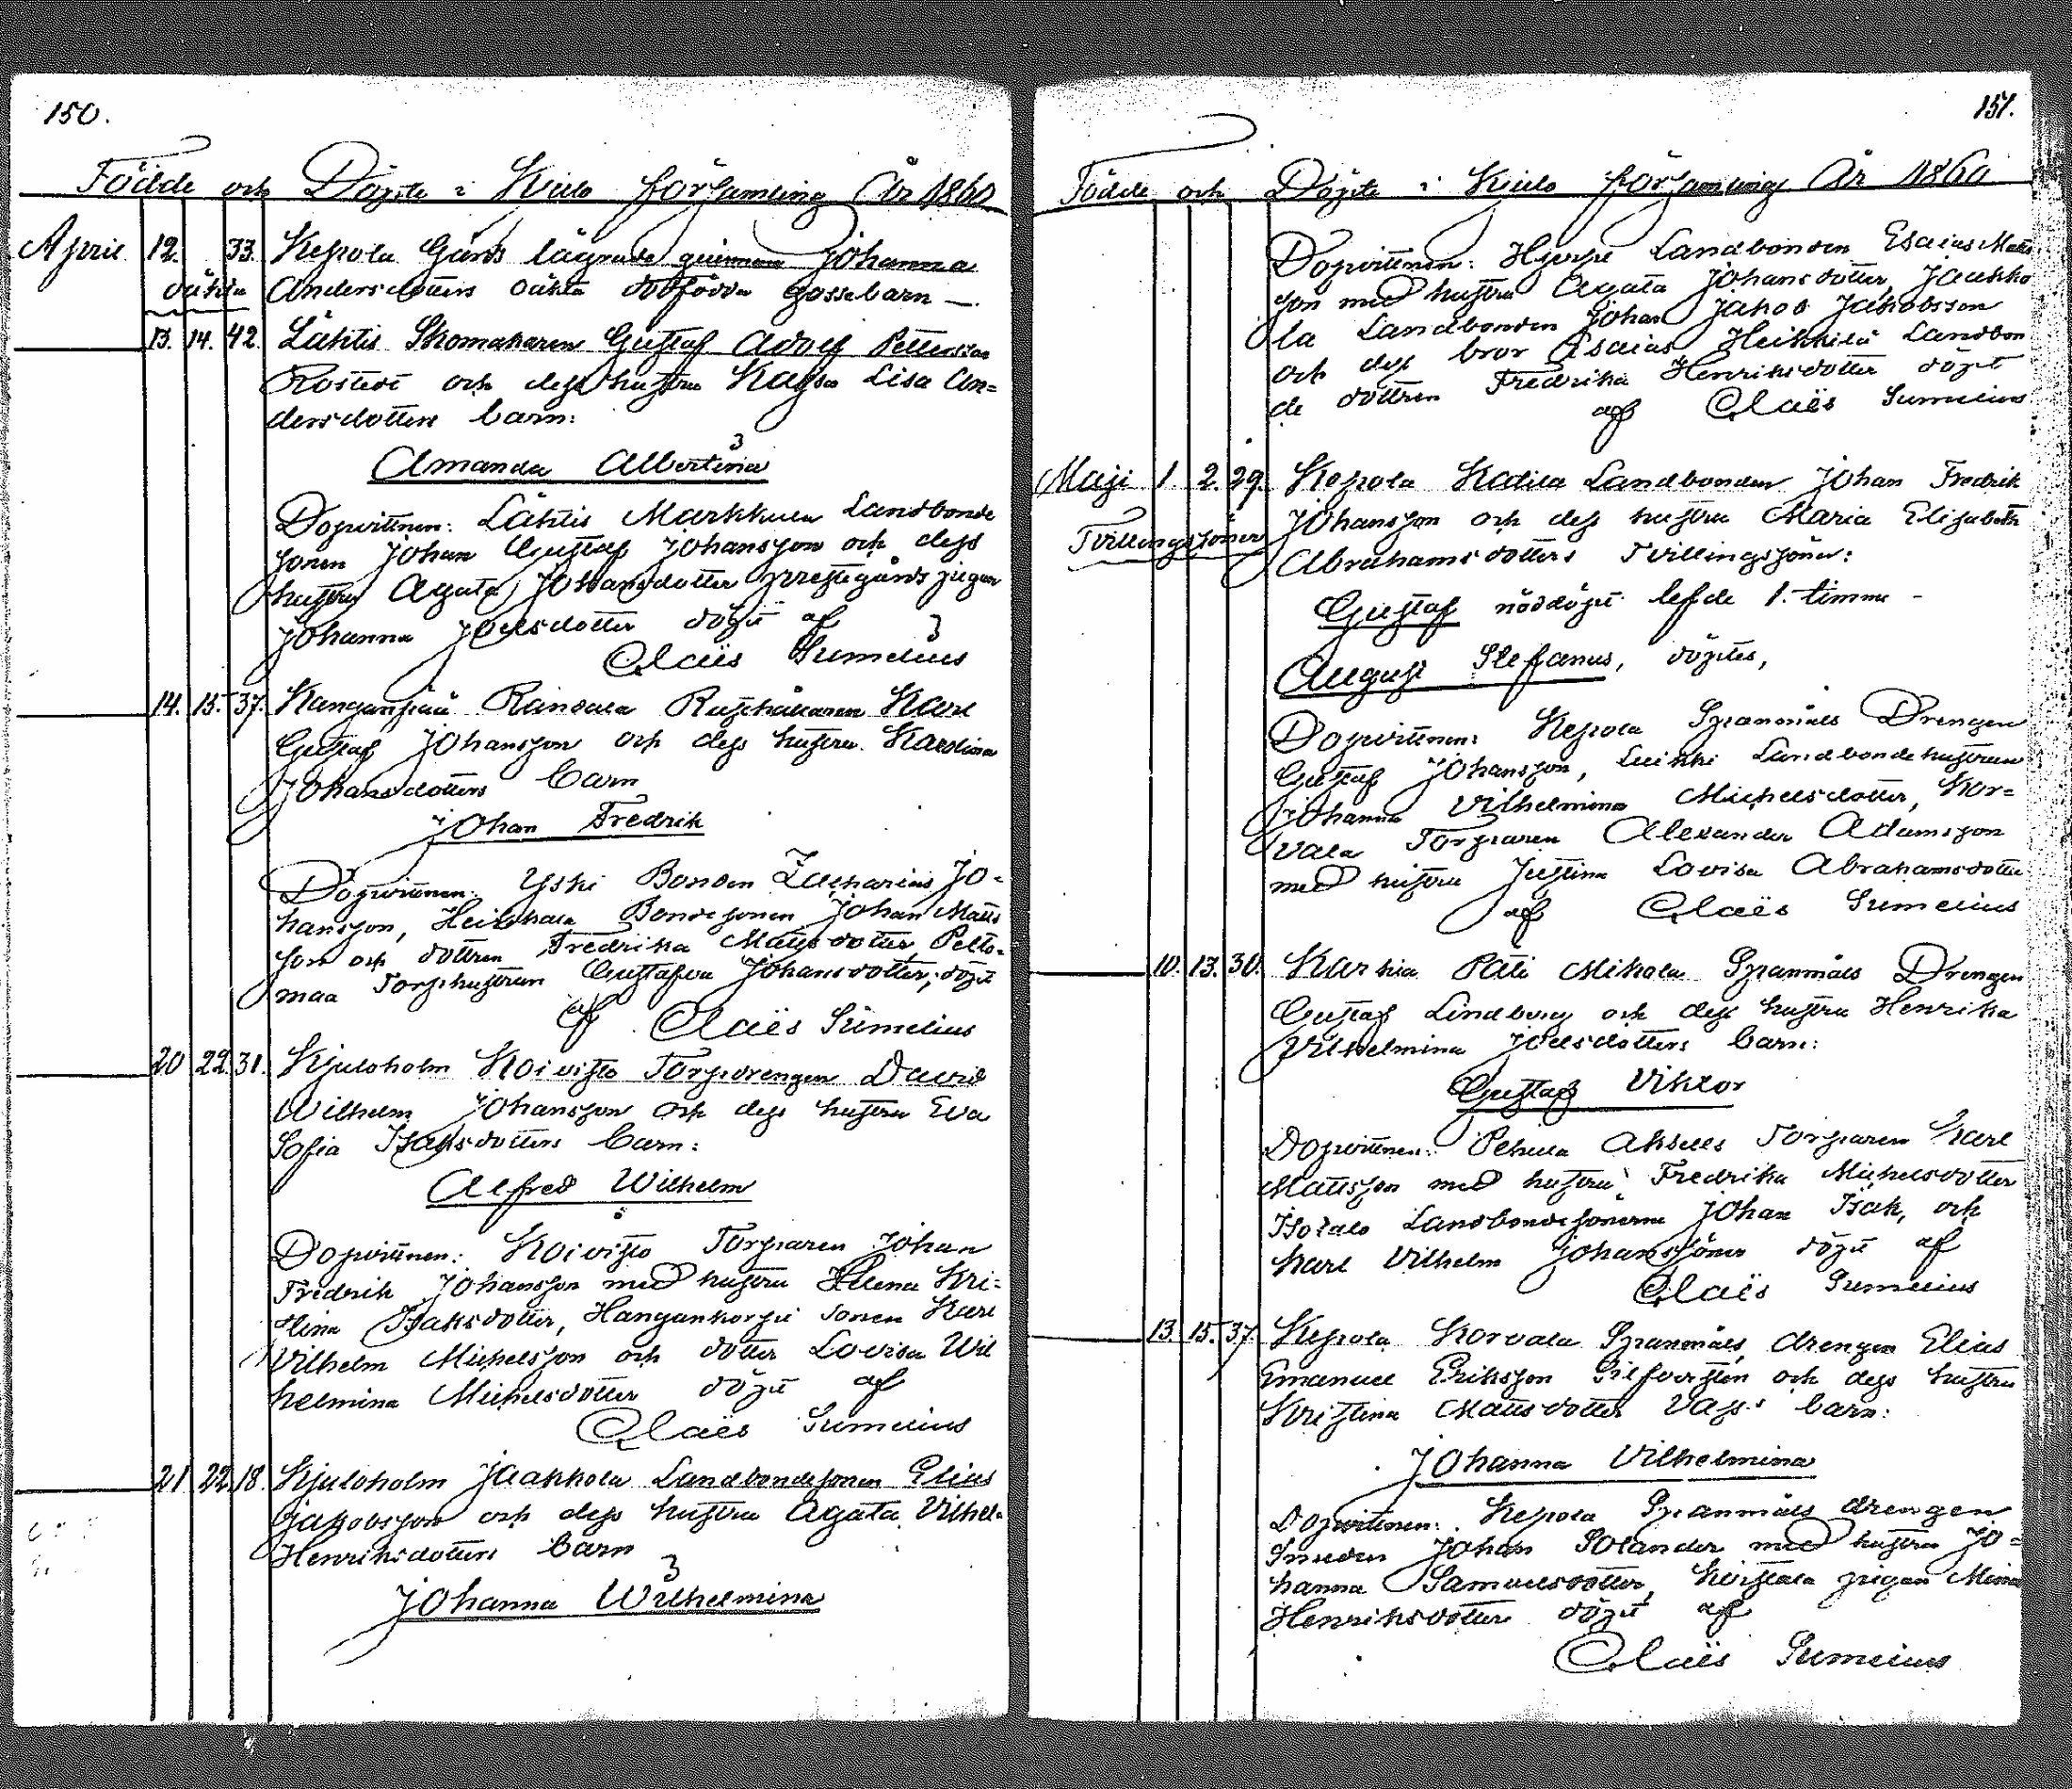 150.
Födde och Döpte i Kiulo församling År 1860
April 12. 33. Kepola Gårds lägrade qvinnan Johanna
oäkta Andersdotters oäkta dödfödda gossebarn —.
13. 14. 42. Lähtis Skomakaren Gustaf Adolf Pettersson
Rostedt och dess hustru Kajsa Lisa An=
dersdotters barn:
Amanda Albertina
Dopvittnen: Lähtis Markkula Landbonde
sonen Johan Gustaf Johansson och dess
hustru Agata Johansdotter prestgårds pigan
Johanna Joelsdotter döpt af
Claës Sumelius
14. 15. 37. Kanganpää Ransala Rusthållaren Karl
Gustaf Johansson och dess hustru Karolina
Johansdotters barn
Johan Fredrik
Dopvittnen: Yski Bonden Zacharias Jo=
hansson, Heikkala Bondesonen Johan Matts
son och dottren Fredrika Mattsdotter, Pelto=
maa Torphustrun Gustafva Johansdotter; döpt
af Claës Sumelius
20 22. 31. Kjuloholm Koivisto Torpdrengen David
Wilhelm Johansson och dess hustru Eva
Sofia Isaksdotters barn:
Alfred Wilhelm
Dopvittnen: Koivisto Torparen Johan
Fredrik Johansson med hustru Helena Kri=
stina Isaksdotter, Hangankorpi sonen Karl
Vilhelm Michelsson och dotter Lovisa Wil
helmina Michelsdotter döpt af
Claës Sumelius
21 22. 18. Kjuloholm Jaakkola Landbondesonen Elias
Jakobsson och dess hustru Agata Vilhel.
Henriksdotters barn
Johanna Wilhelmina
151.
Födde och Döpte i Kiulo församling År 1860
Dopvittnen: Hjerpe Landbonden Esaias Matts
son med hustru Agata Johansdotter, Jaakko
la Landbonden Johan Jakob Jakobsson
och dess bror Esaias Heikkilä Landbon
de dottren Fredrika Henriksdotter döpt
af Claës Sumelius
Maji 1. 2. 29. Kepola Landbonden Johan Fredrik
Tvillingssöner Johansson och dess hustru Maria Elisabeth
Abrahamsdotters Tvillingssöner:
Gustaf nöddöpt lefde 1. timme -
August Stefanus, döptes,
Dopvittnen: Kepola Spanmåls Drengen
Gustaf Johansson, Luikki Landbondehustrun
Johanna Vilhelmina Michelsdotter, Kor=
vala Torparen Alexander Adamsson
med hustru Justina Lovisa Abrahamsdotter
af Claës Sumelius
10. 13. 30. Karhia Mikola Spanmåls Drengen
Gustaf Lindberg och dess hustru Henrika
Vilhelmina Joelsdotters barn:
Gustaf Viktor
Dopvittnen: Pehula Torparen Karl
Mattsson med hustru Fredrika Michelsdotter
Isotalo Landbondesönerna Johan Isak, och
Karl Vilhelm Johanssöner döpt af
Claës Sumelius
13. 15. 37. Kepola Korvala Spanmåls drengen Elias
Emanuel Eriksson Silfversten och dess hustru
Kristina Mattsdotter barn:
Johanna Vilhelmina
Dopvittnen: Kepola Spanmåls drengen
Smeden Johan Solander med hustru Jo=
hanna Samuelsdotter, pigan Mina
Henriksdotter döpt af
Claës Sumelius